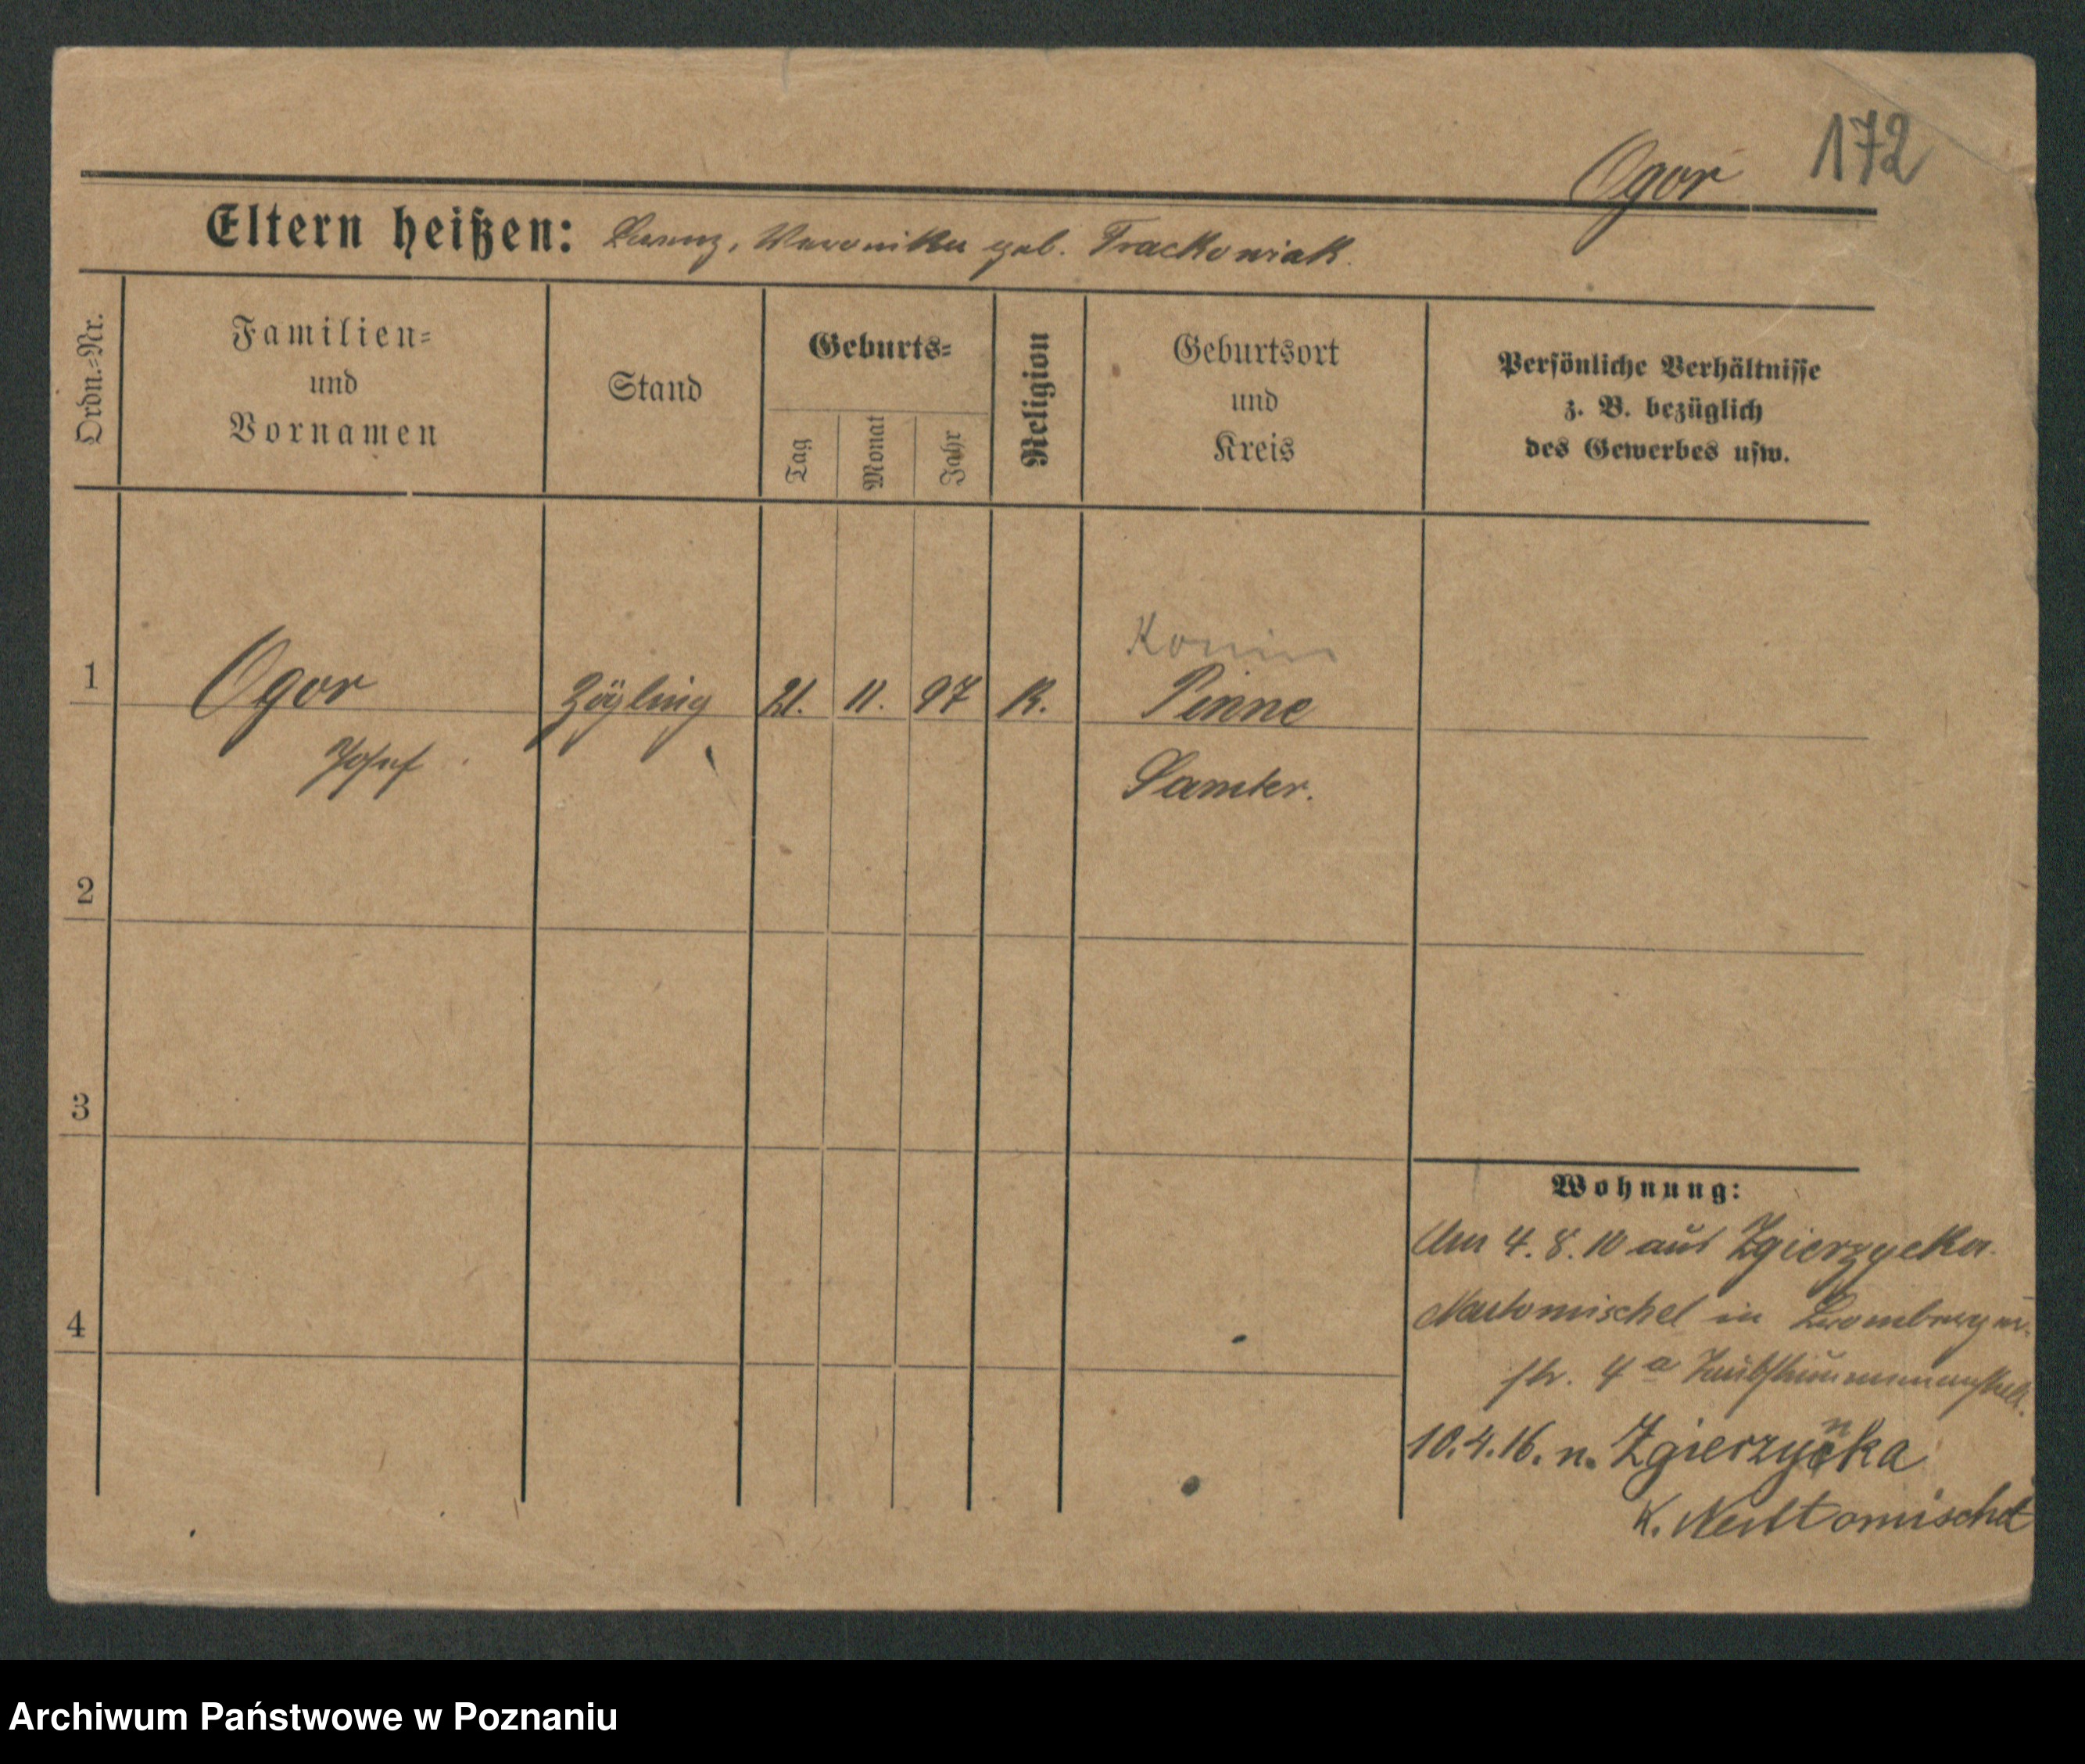 172
Ogor
Eltern heißen: Lorenz, Veronika geb. Trackowiak.
Ordn.=Nr.
Familien=
und
Vornamen
Stand
Geburts=
Tag
Monat
Jahr
Religion
Geburtsort
und
Kreis
Persönliche Verhältnisse
z. B. bezüglich
des Gewerbes usw.
Konin
1 Ogor Zögling 21. 11. 97 K. Pinne
Josef Samter.
2
3
4
Wohnung:
Am 4. 8. 10 aus Zgierzycka
Neutomischel in Bromberger
str. 4a Taubstummenanstalt.
10.4.16. n. Zgierzynka
K. Neutomischel
Archiwum Państwowe w Poznaniu